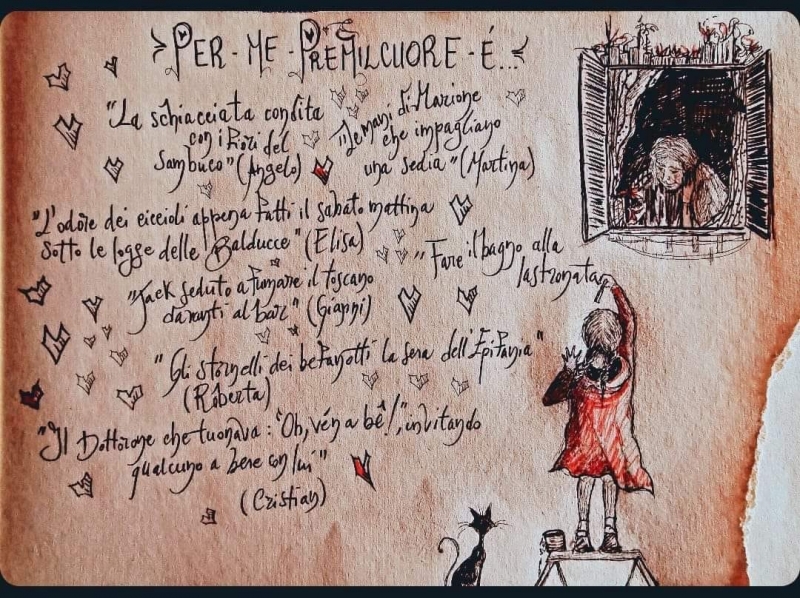 PER-ME-PREMILCUORE-É...
"La schiacciata condita
con i fiori del
Sambuco" (Angelo)
"Le mani di Marione
che impagliano
una sedia" (Martina)
"L'odore dei ciccioli appena fatti il sabato mattina
sotto le logge delle Balducce" (Elisa)
"Fare il bagno alla
lastronata
"Jack seduto a fumare il toscano
davanti al bar" (Gianni)
"Gli stornelli dei befanotti la sera dell'Epifania"
(Roberta)
"Il Dottorone che tuonava: "Oh, vén a bê!", invitando
qualcuno a bere con lui"
(Cristian)